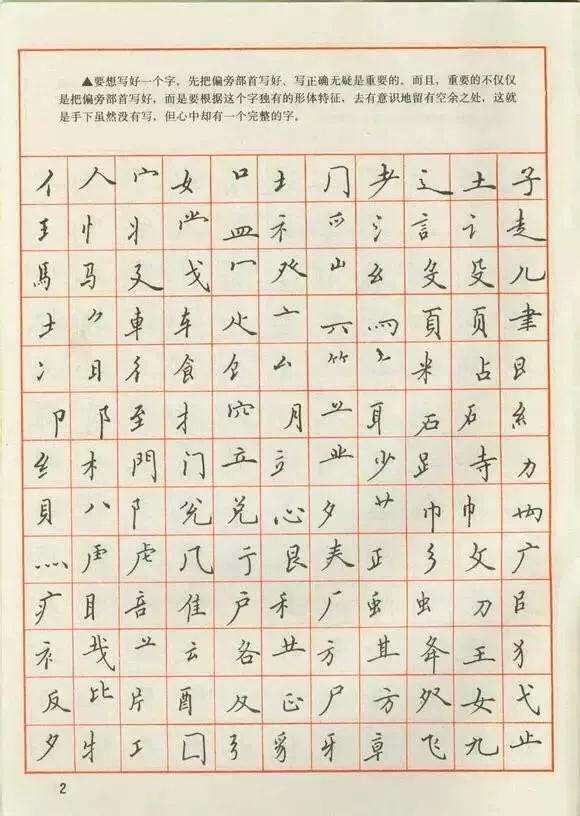 ▲要想写好一个字，先把偏旁部首写好、写正确无疑是重要的。而且，重要的不仅仅
是把偏旁部首写好，而是要根据这个字独有的形体特征，去有意识地留有空余之处，这就
是手下虽然没有写，但心中却有一个完整的字。
亻 人 宀 女 口 土 冂 耂 辶 土 子
王 忄 丬 龸 皿 礻 爫 氵 言 讠 走
馬 马 廴 戈 冖 癶 山 幺 殳 儿
士 車 车 亠 罒 頁 页 聿
冫 日 彳 食 饣 厶 ⺮ 米 占 艮
卩 阝 至 扌 穴 月 䒑 耳 石 石 糹
纟 木 門 门 立 立 业 少 𧾷 寺 力
貝 八 阝 兑 心 夕 艹 巾 巾
灬 虍 几 亍 艮 夫 正 彡 攵 广
疒 目 音 隹 户 禾 厂 虫 虫 刀
衤 䒑 云 各 方 其 夅 王 犭
反 比 片 酉 及 正 尸 方 女 弋
夕 牛 工 囗 弓 豸 牙 章 飞 九 止
2